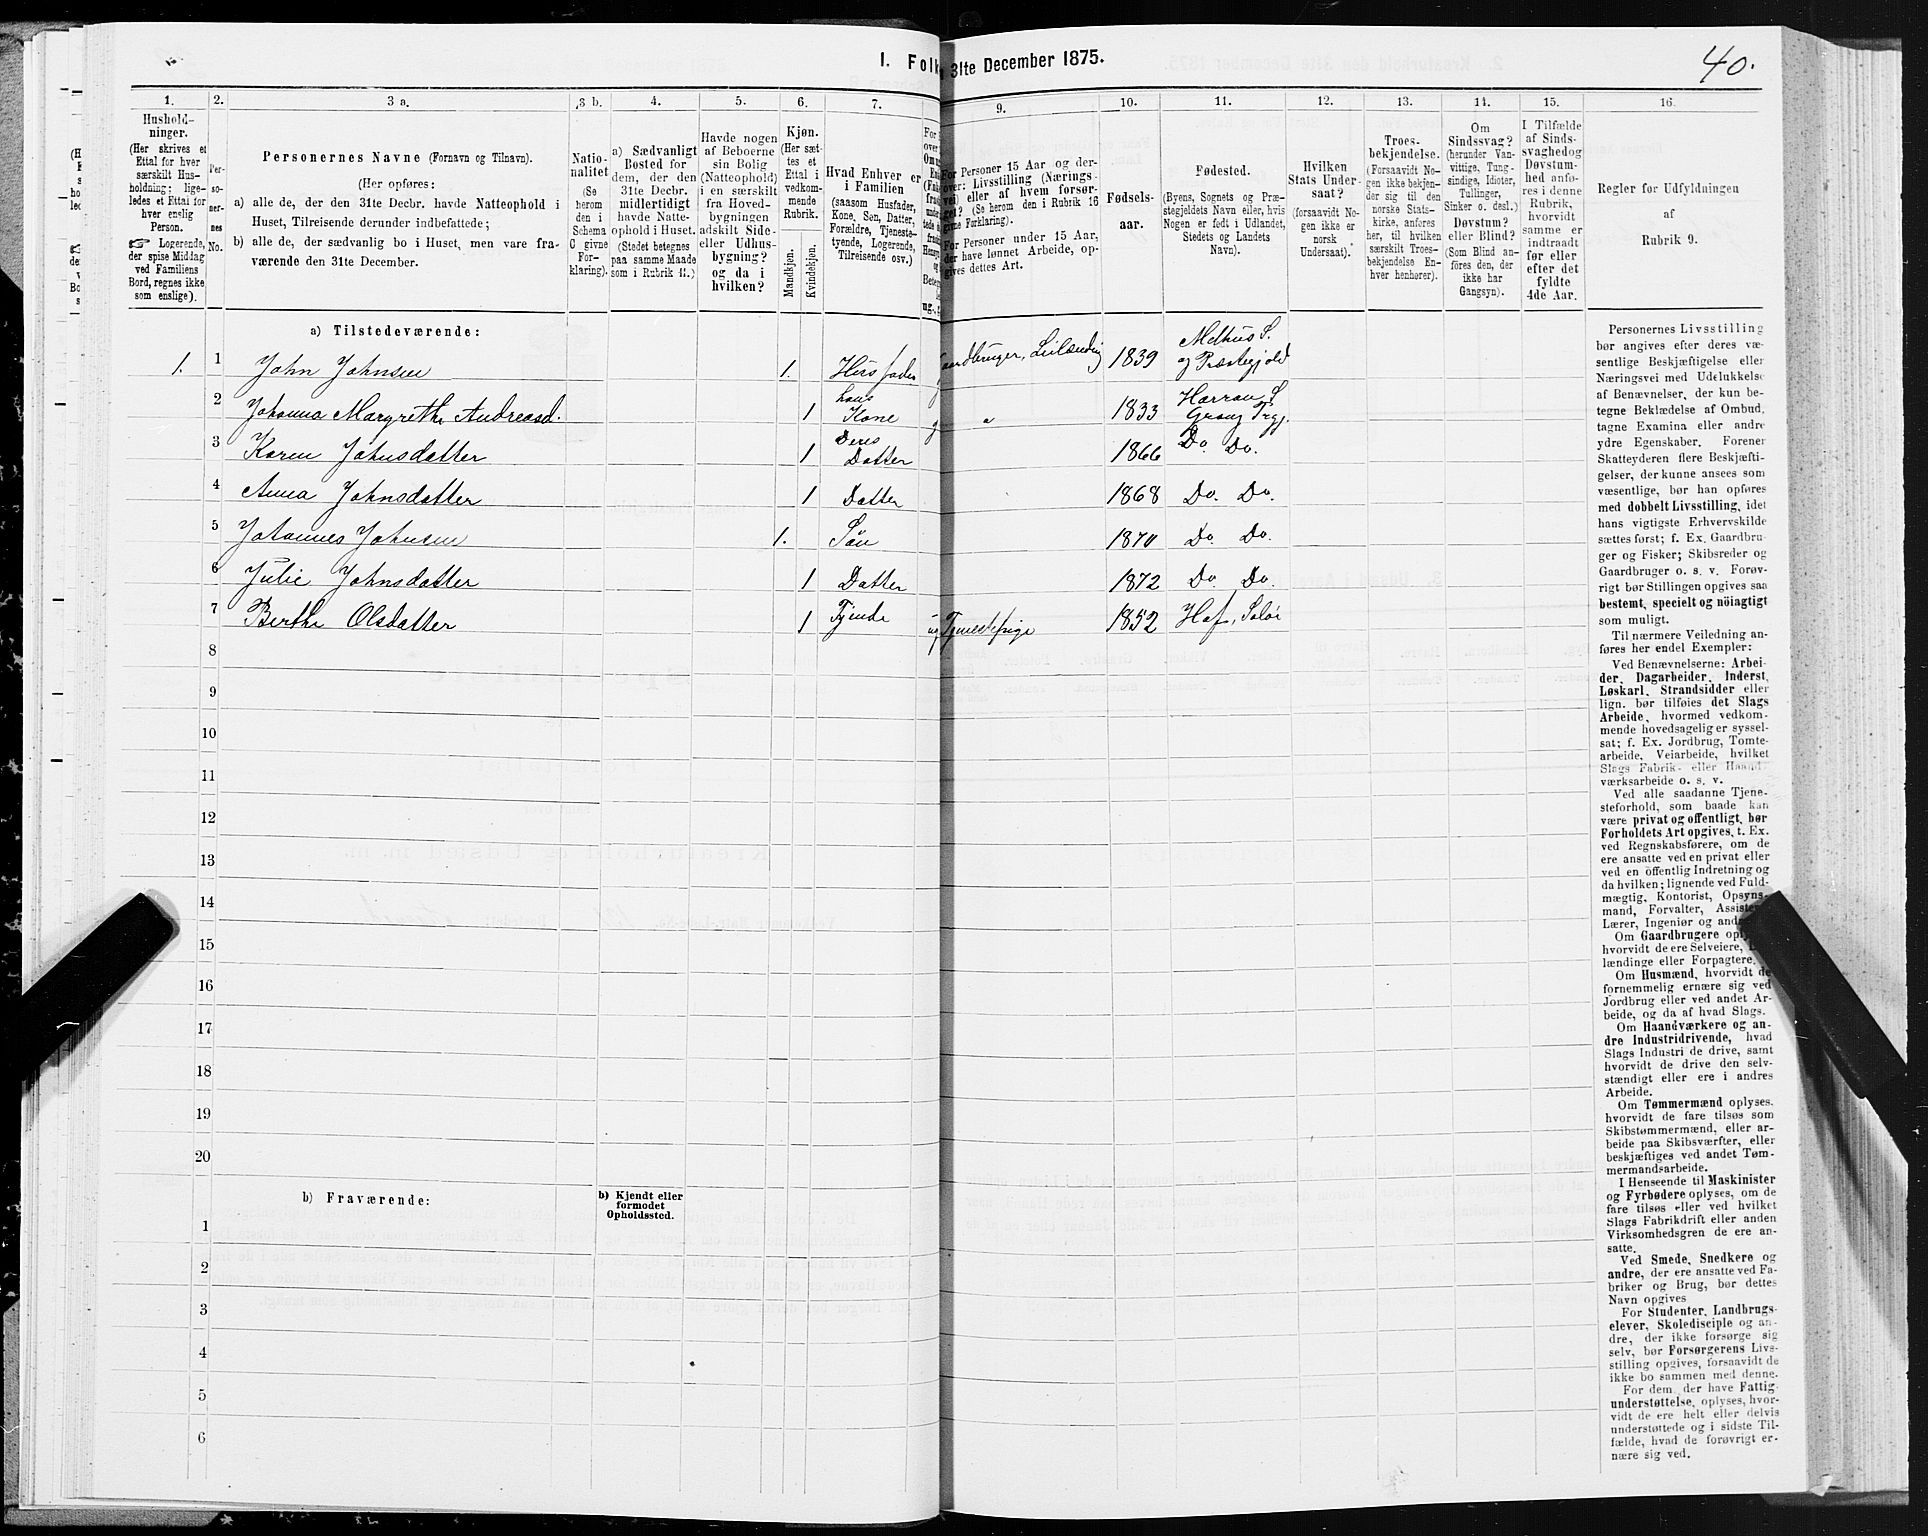 40.
1. Folk 31te December 1875.
1.
2.
3 a.
3 b.
4.
5.
6.
7.
9.
10.
11.
12.
13.
14.
15.
16.
Hushold-
ninger.
(Her skrives et
Ettal for hver
særskilt Hus-
holdning; lige-
ledes et Ettal for
hver enslig
Person.
Logerende,
der spise Middag
ved Familiens
Bord, regnes ikke
som enslige).
Per-
so-
ner-
nes
No.
Personernes Navne (Fornavn og Tilnavn).
(Her opføres:
a) alle de, der den 31te Decbr. havde Natteophold i
Huset, Tilreisende derunder indbefattede;
b) alle de, der sædvanlig bo i Huset, men vare fra-
værende den 31te December.
Natio-
nalitet
(Se
herom
den i
Schema
C givne
For-
klaring).
a) Sædvanligt
Bosted for
dem, der den
31te Decbr.
midlertidigt
havde Natte-
ophold i Huset.
(Stedet betegnes
paa samme Maade
som i Rubrik 11.)
Havde nogen
af Beboerne
sin Bolig
(Natteophold)
i en særskilt
fra Hoved-
bygningen
adskilt Side-
eller Udhus-
bygning?
og da i
hvilken?
Kjøn.
(Her sæt-
tes et
Ettal i
vedkom-
mende
Rubrik.
Mandkjøn.
Kvindekjøn.
Hvad Enhver er
i Familien
(saasom Husfader,
Kone, Søn, Datter,
Forældre, Tjeneste-
tyende, Logerende,
Tilreisende osv.)
For Personer 15 Aar og der-
over: Livsstilling (Nærings-
vei) eller af hvem forsør-
get? (Se herom den i Rubrik 16
givne Forklaring.)
For Personer under 15 Aar,
der have lønnet Arbeide, op-
gives dettes Art.
Fødsels-
aar.
Fødested.
(Byens, Sognets og Præ-
stegjeldets Navn eller, hvis
Nogen er født i Udlandet,
Stedets og Landets
Navn).
Hvilken
Stats Under-
saat?
(forsaavidt No-
gen ikke er
norsk
Undersaat).
Troes-
bekjendelse.
(Forsaavidt No-
gen ikke bekjen-
der sig til den
norske Stats-
kirke, anføres
her, til hvilken
særskilt Troes-
bekjendelse En-
hver henhører).
Om
Sindssvag?
(herunder Van-
vittige, Tung-
sindige, Idioter,
Tullinger,
Sinker o. desl.)
Døvstum?
eller Blind?
(Som Blind an-
føres den, der
ikke har
Gangsyn).
I Tilfælde
af Sinds-
svaghed og
Døvstum-
hed anfø-
res i denne
Rubrik,
hvorvidt
samme er
indtraadt
før eller
efter det
fyldte
4de Aar.
Regler for Udfyldningen
af
Rubrik 9.
a) Tilstedeværende:
1. 1 John Johnsen 1. Husfader Gaardbruger, Leilænding 1839 Melhus S. og Præstegjeld
2 Johanna Margrethe Andreasd. 1 hans Kone " 1833 Harran S Grong Prgj.
3 Karen Johnsdatter 1 Deres Datter 1866 Do. Do.
4 Anna Johnsdatter 1 Datter 1868 Do. Do.
5 Johannes Johnsen 1. Søn 1870 Do. Do.
6 Julie Johnsdatter 1 Datter 1872 Do. Do.
7 Berthe Olsdatter 1 Tjende ug Tjenestepige 1852 Hof, Solør
8
9
10
11
12
13
14
15
16
17
18
19
20
b) Fraværende:
b) Kjendt eller
formodet
Opholdssted.
1
2
3
4
5
6
Personernes Livsstilling
bør angives efter deres væ-
sentlige Beskjæftigelse eller
Næringsvei med Udelukkelse
af Benævnelser, der kun be-
tegne Beklædelse af Ombud,
tagne Examina eller andre
ydre Egenskaber. Forener
Skatteyderen flere Beskjæfti-
gelser, der kunne ansees som
væsentlige, bør han opføres
med dobbelt Livsstilling, idet
hans vigtigste Erhvervskilde
sættes først; f. Ex. Gaardbru-
ger og Fisker; Skibsreder og
Gaardbruger o. s. v. Forøv-
rigt bør Stillingen opgives saa
bestemt, specielt og nöiagtigt
som muligt.
Til nærmere Veiledning an-
føres her endel Exempler:
Ved Benævnelserne: Arbei-
der, Dagarbeider, Inderst,
Løskarl, Strandsidder eller
lign. bør tilføies det Slags
Arbeide, hvormed vedkom-
mende hovedsagelig er syssel-
sat; f. Ex. Jordbrug, Tomte-
arbeide, Veiarbeide, hvilket
Slags Fabrik- eller Haand-
værksarbeide o. s. v.
Ved alle saadanne Tjene-
steforhold, som baade kan
være privat og offentligt, bør
Forholdets Art opgives, t. Ex.
ved Regnskabsførere, om de
ere ansatte ved en privat eller
ved en offentlig Indretning og
da hvilken; lignende ved Fuld-
mægtig, Kontorist, Opsyns-
mand, Forvalter,
Lærer, Ingeniør og
Om Gaardbrugere
hvorvidt de ere Selveiere,
lændinge eller Forpagtere.
Om Husmænd, hvorvidt de
fornemmelig ernære sig ved
Jordbrug eller ved andet Ar-
beide, og da af hvad Slags.
Om Haandværkere og an-
dre Industridrivende, hvad
Slags Industri de drive, samt
hvorvidt de drive den selv-
stændigt eller ere i andres
Arbeide.
Om Tømmermænd oplyses,
hvorvidt de fare tilsøs som
Skibstømmermænd, eller ar-
beide paa Skibsværfter, eller
beskjæftiges ved andet Tøm-
mermandsarbeide.
I Henseende til Maskinister
og Fyrbødere oplyses, om de
fare tilsøs eller ved hvilket
Slags Fabrikdrift eller anden
Virksomhedsgren de ere an-
satte.
Ved Smede, Snedkere og
andre, der ere ansatte ved Fa-
briker og Brug, bør dettes
Navn opgives
For Studenter, Landbrugs-
elever, Skoledisciple og an-
dre, der ikke forsørge sig
selv, bør Forsørgerens Livs-
stilling opgives, forsaavidt de
ikke bo sammen med denne.
For dem, der have Fattig-
understøttelse, oplyses, hvor-
vidt de ere helt eller delvis
understøttede og i sidste Til-
fælde, hvad de forøvrigt er-
nære sig ved.